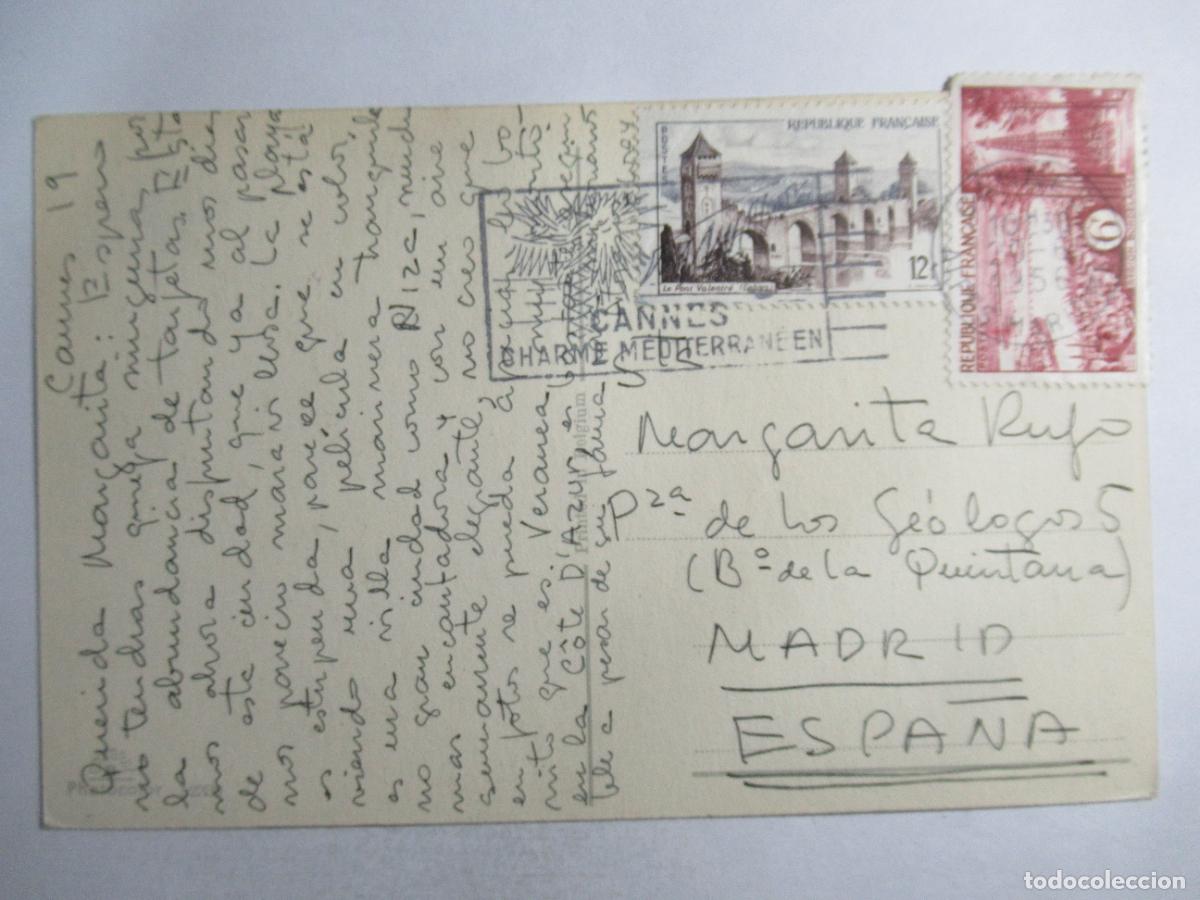 Cannes 19
Querida Margarita: Espero
no tendrás queja ninguna, por
la abundancia de tarjetas. Esta
mos ahora disfrutando unos dias
de esta ciudad, que ya al pasar
nos pareció maravillosa. La playa
es estupenda, parece que se está
viendo una película en color,
es una villa marinera tranquila
no gran ciudad como Niza, mucho
mas encantadora y con un aire
sumamente elegante, no creo que
en fotos se pueda apreciar lo bo-
nito que es. Veranea
en la Côte D'Azur es
ble a pesar de su fama
REPUBLIQUE FRANÇAISE
POSTES
12F
Le Pont Valentré (Cahors)
REPUBLIQUE FRANÇAISE
POSTES
9
1956
CANNES
CHARME MEDITERRANÉEN
Margarita Rufo
Pza de los Geólogos 5
(Bº de la Quintana)
MADRID
ESPAÑA
Printed in Belgium
todocoleccion